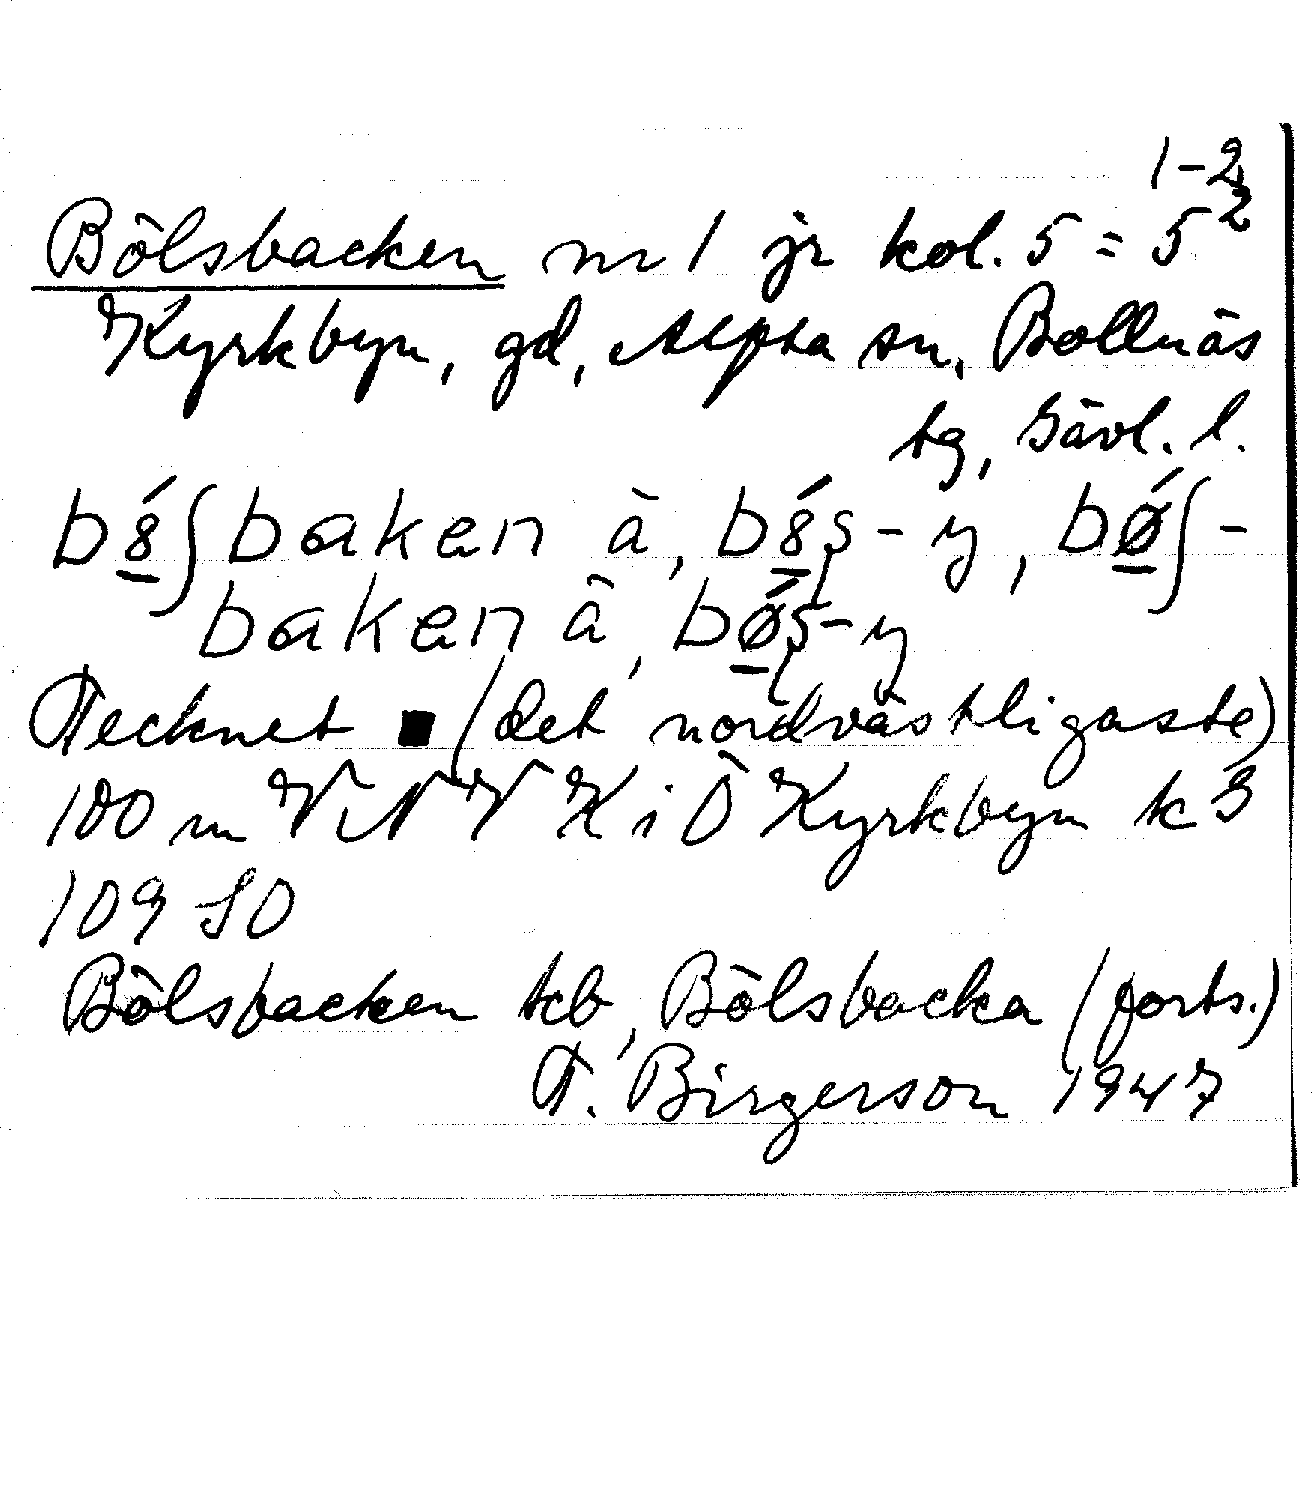 1-2
Bölsbacken nr 1 jr kol. 5 = 5²
Kyrkbyn, gd, Alfta sn, Bollnäs
tg, Gävl. l.
bȣ́ʃbaken à, bȣ́ş-y, bǿʃ-
baken à, bǿş-y
Tecknet ■ (det nordvästligaste)
100 m VNV K i Ö Kyrkbyn k 3
109 SO
Bölsbacken tcb, Bölsbacka (forts.)
T. Birgerson 1947